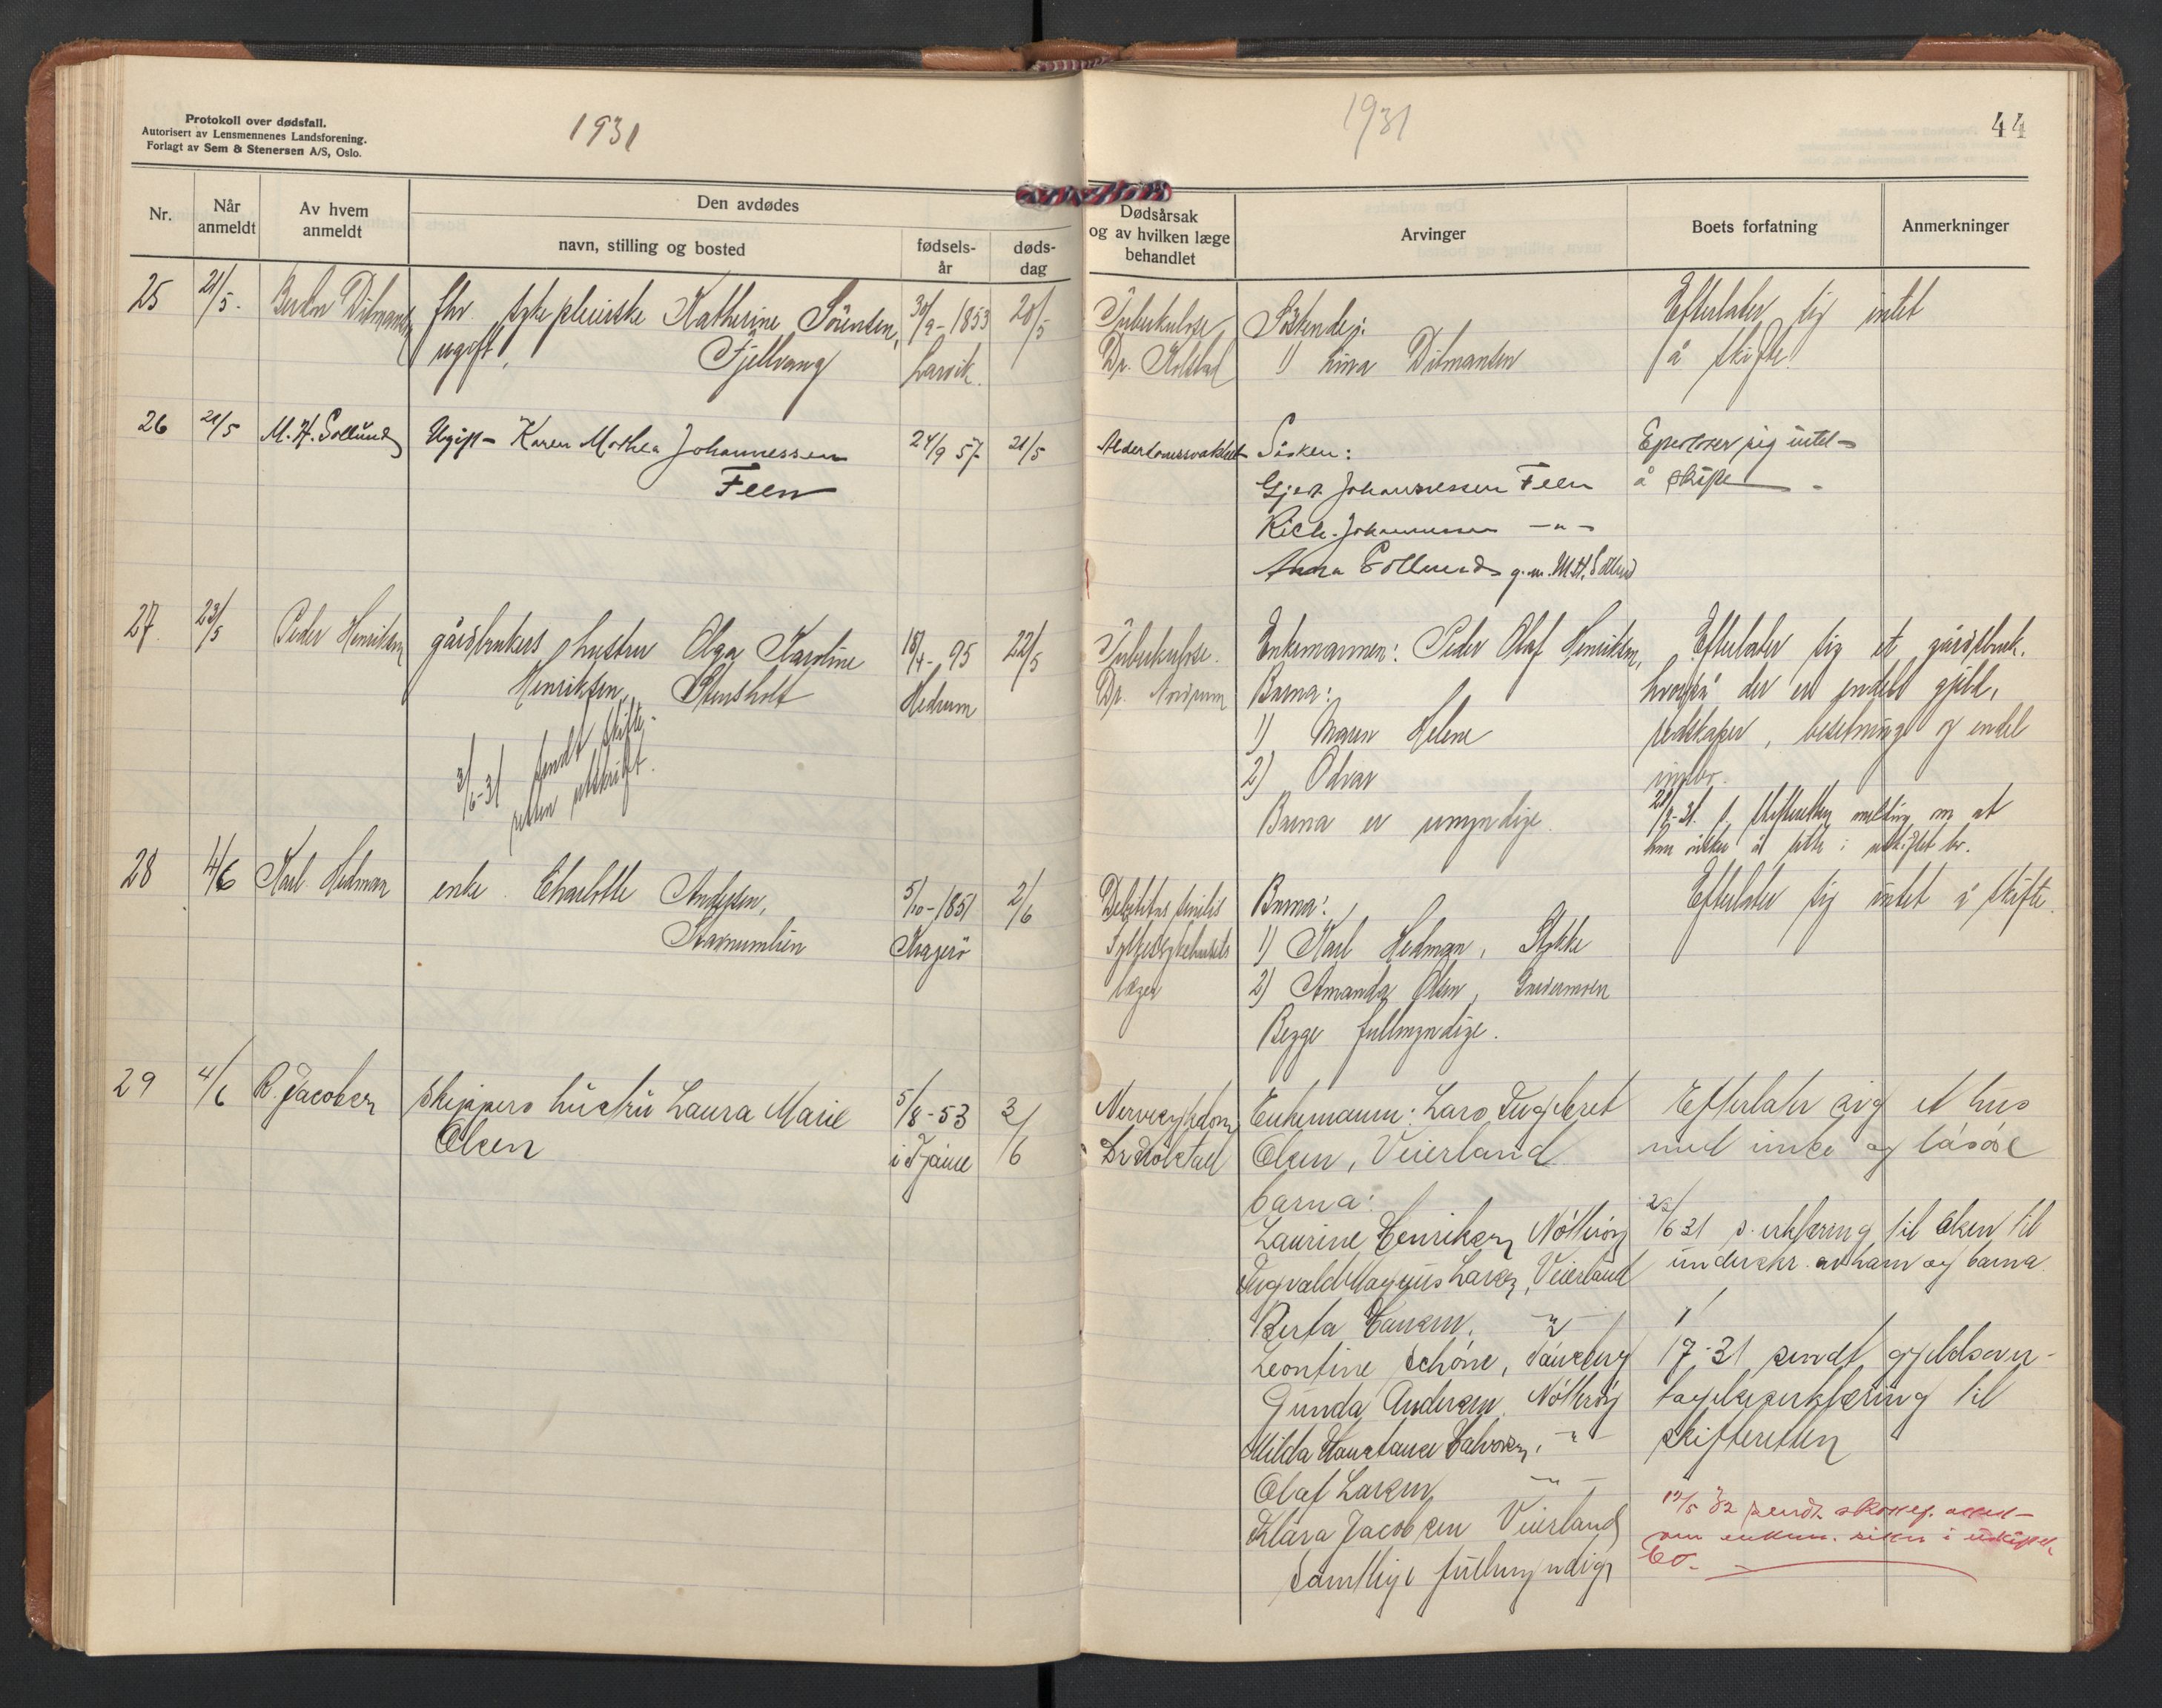 Protokoll over dødsfall.
Autorisert av Lensmennenes Landsforening.
Forlagt av Sem & Stenersen A/S, Oslo.
1931
Nr.
Når anmeldt
Av hvem anmeldt
Den avdødes
navn, stilling og bosted
fødsels-
år
døds-
dag
25 21/5. Ditmansen fhv. sykepleierske Katherine Sörensen, 30/9-1853 20/5
ugift, Fjellvang Larvik.
26 21/5 M. H. Sollund Ugift Karen Mathea Johannessen 24/9 57 21/5
Feen
27. 23/5 Peder Henriksen gårdbrukers hustru Olga Karoline 18/4-95 22/5
Henriksen, Stensholt Hedrum
3/6-31 sendt skifte-
retten utskrift.
28 4/6 Karl Hedman enke Charlotte Andersen, 5/10-1851 2/6
Kragerö
29 4/6 R. Jacobsen Skippers hustru Laura Marie 5/8-53 3/6
Olsen i Tjøme
1931
44
Dødsårsak
og av hvilken læge
behandlet
Arvinger
Boets forfatning
Anmerkninger
Tuberkulose Söskende: Efterlater sig intet
Dr. Kolstad 1) Lina Ditmansen å skifte.
Alderdomssvakhet Sösken: Efterlater sig intet
Gjert Johannessen Feen å skifte
Rich. Johannessen -"-
Anna Sollund g.m. M.H. Sollund
Tuberkulose. Enkemannen: Peder Olaf Henriksen, Efterlater sig et gårdsbruk,
Dr. Barna: hvorpå der er endel gjeld,
1) Maren Helene redskaper, besetning og endel
2) Odvar innbo.
Barna er umyndige. skifteretten melding om at
han ønsker å sitte i uskiftet bo.
Debilitas senilis Barna: Efterlater sig intet å skifte.
Fylkessykehusets 1) Karl Hedman, Stokke
læger 2) Amanda Olsen,
Begge fullmyndige.
Nervesykdom Enkemann: Lars Ingebret Efterlater sig et hus
Dr Kolstad Olsen, Veierland med innbo og løsøre
barna:
Laurine Henriksen Nötteröy 22/6 31 s. erklæring til Olsen til
Ingvald Magnus Larsen, Veierland underskr. av ham og barna
Berta Hansen, -"-
Leontine Schöne, Tönsberg 1/7-31 sendt gjeldsover-
Gunda Andersen, Nötteröy tagelseserklæring til
Milda Konstanse Halvorsen, -"- skifteretten
Olaf Larsen -"-
Klara Jacobsen Veierland
Samtlige fullmyndige
om enkem. sitter i uskiftet
bo.